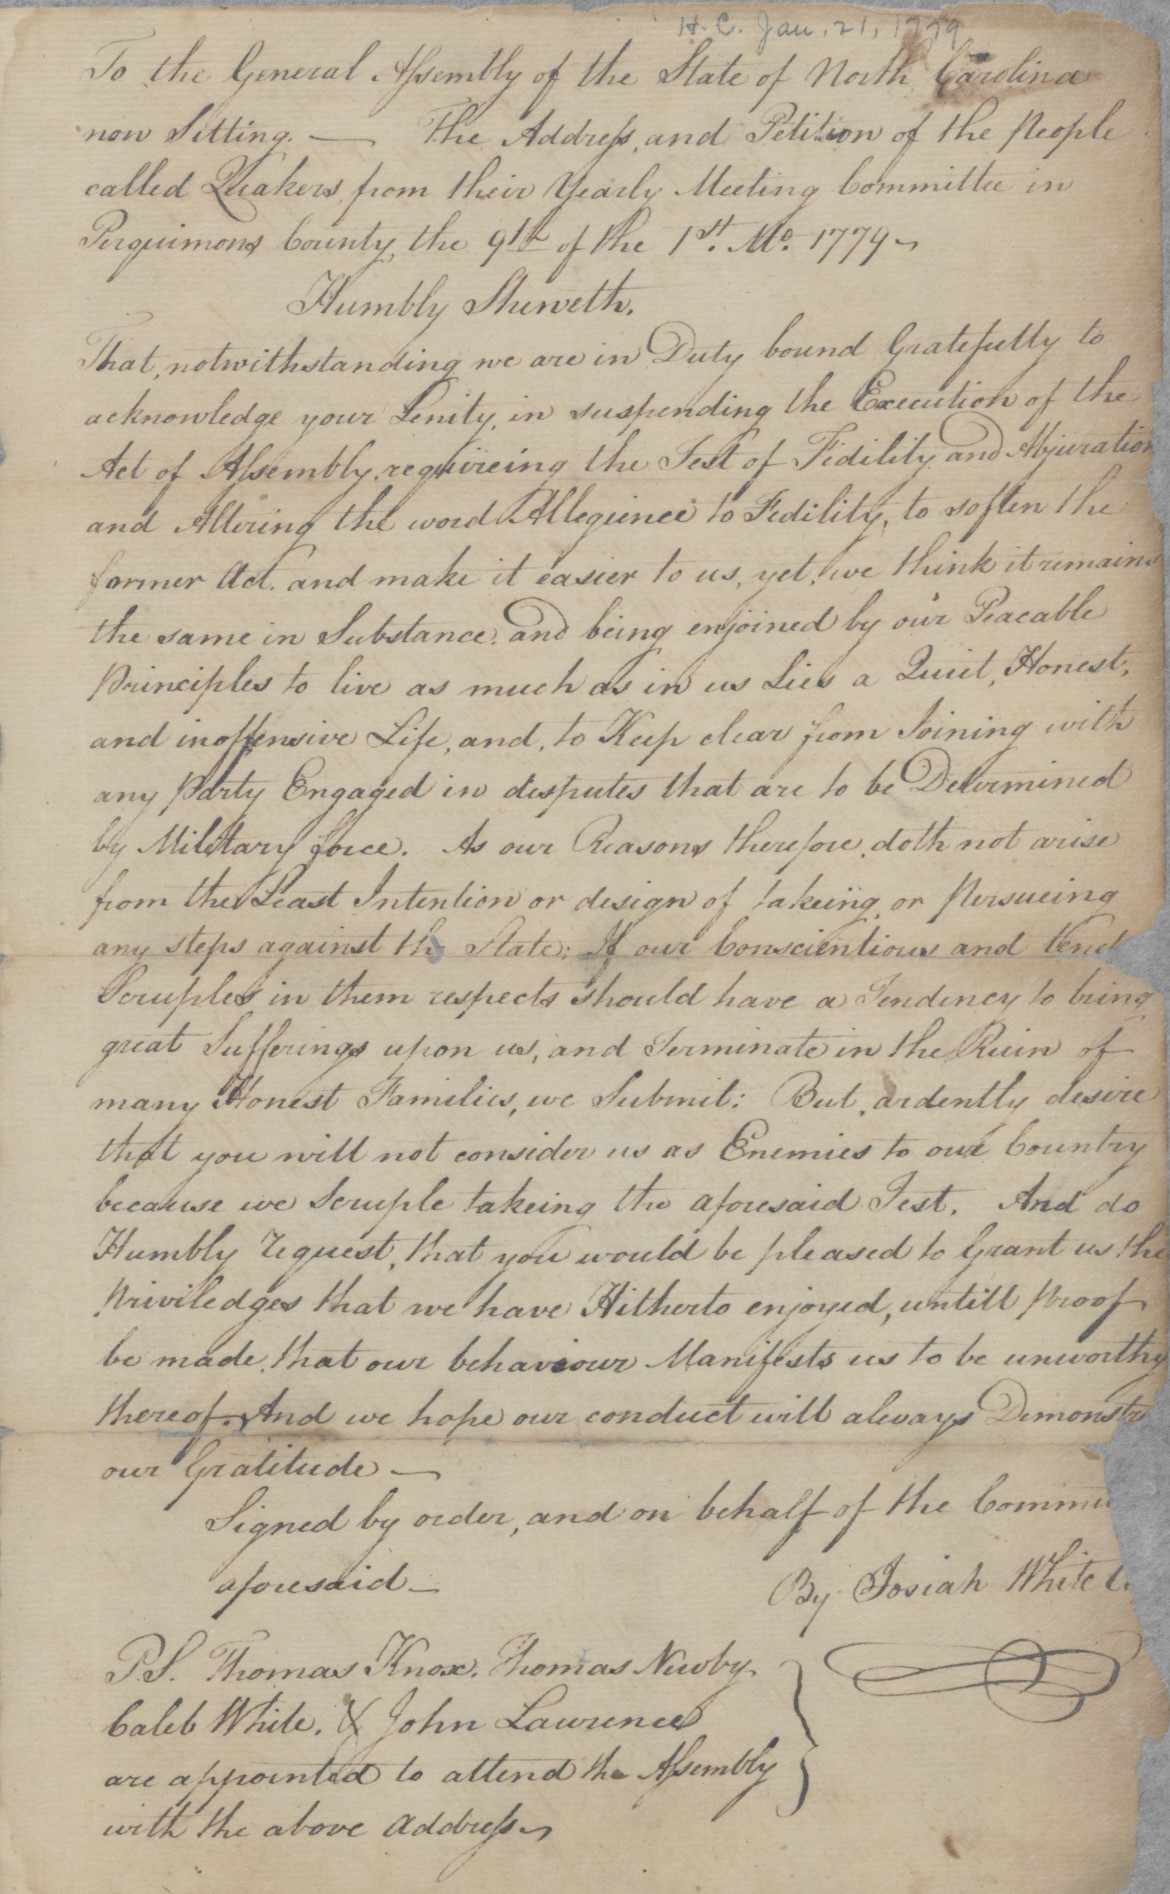 H. C. Jan. 21, 1779
To the General Assembly of the State of North Carolina
now Sitting. — The Address, and Petition of the People
called Quakers, from their Yearly Meeting Committee in
Perquimons County, the 9th of the 1st. Mo. 1779
Humbly Sheweth.
That, notwithstanding we are in Duty bound Gratefully to
acknowledge your Lenity, in suspending the Execution of the
Act of Assembly, requireing the Test of Fidility and Abjuration
and Altering the word Allegience to Fedility, to soften the
former Act. and make it easier to us, yet, we think it remains
the same in Substance. and being enjoined by our Peacable
Principles to live as much as in us Lies a Quiet, Honest,
and inoffensive Life, and, to Keep clear from Joining with
any Party Engaged in desputes that are to be Determined
by Military force. As our Reasons therefore, doth not arise
from the Least Intention or design of takeing, or Persueing
any steps against the State: If our Conscientious and tend
Scruples in them respects should have a Tendency to bring
great Sufferings upon us, and Terminate in the Ruin of
many Honest Families, we Submit: But, ardently desire
that you will not consider us as Enemies to our Country
because we Scruple takeing the aforesaid Test. And do
Humbly request, that you would be pleased to Grant us the
Priviledges that we have Hitherto enjoyed, untill Proof
be made, that our behaviour Manifests us to be unworthy
thereof. And we hope our conduct will always Demonstr
our Gratitude —
Signed by order, and on behalf of the Commi
aforesaid —
By Josiah White
P.S. Thomas Knox, Thomas Newby
Caleb White, & John Lawrence
are appointed to attend the Assembly
with the above Address